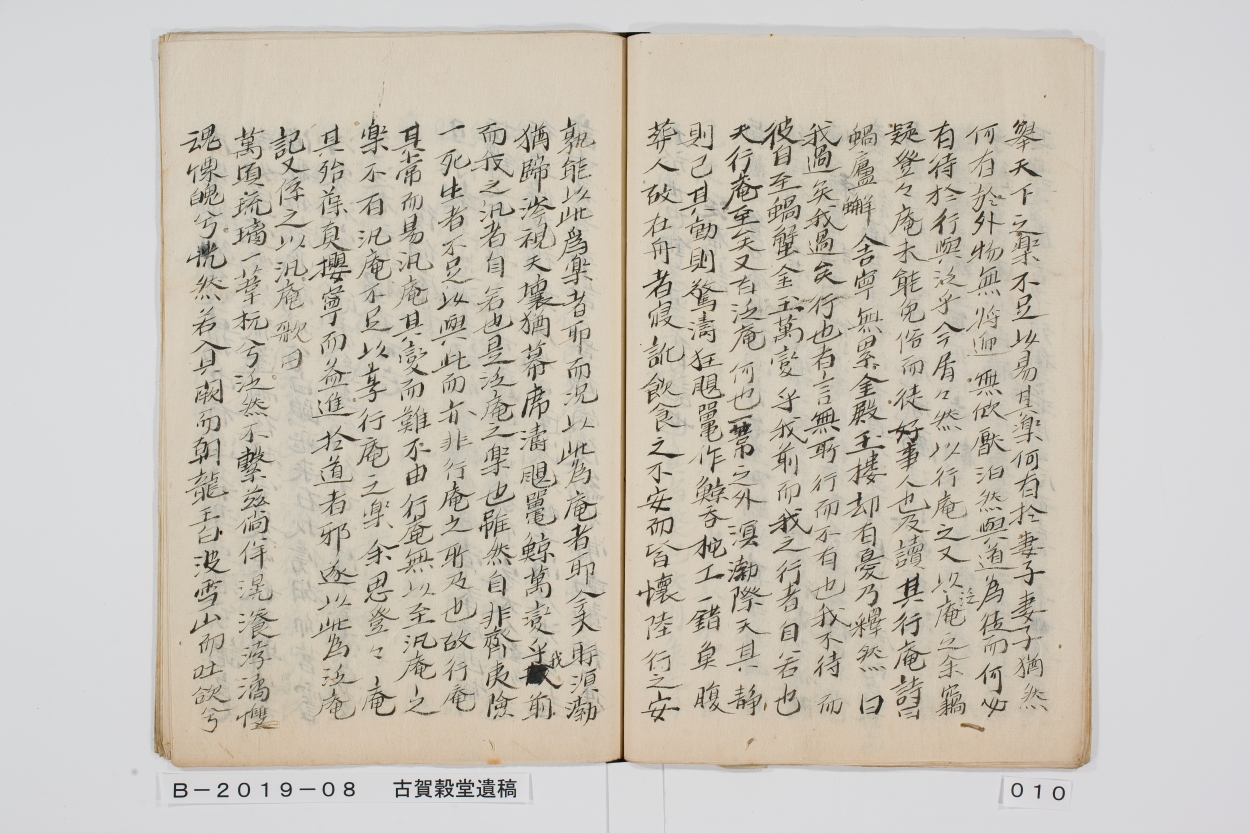 擧天下之樂不足以易其樂何有於妻子妻子猶然
何有於外物無將迎無欣厭泊然與道為徒而何必
有待於行與泛乎今屑々然以行庵之又以泛庵之余竊
疑登々庵未能免俗而徒好事人也及讀其行庵詩曰
蝸廬蠏舍寧無累金殿玉樓却有憂乃釋然曰
我過矣我過矣行也有言無所行而不有也我不待而
彼自至蝸蟹金玉萬變乎我前而我之行者自若也
夫行庵至矣又有泛庵何也一葦之外溟渤際天其靜
則已其動則驚濤狂颶鼉作鯨呑柁工一錯魚腹
葬人故在舟者寢訛飲食之不安而皆懷陸行之安
孰能以此為樂者耶而況以此為庵者耶今夫所溟渤
猶蹄涔視天壤猶幕席濤颶鼉鯨萬變乎我前
而我之汎者自若也是泛庵之樂也雖然自非齊夷險
一死生者不足以與此而亦非行庵之所及也故行庵
其常而易汎庵其變而難不由行庵無以至汎庵之
樂不有汎庵不足以享行庵之樂余思登々庵
其殆葆真攖寧而益進於道者邪遂以此為泛庵
記又係之以汎庵歌曰
萬頃琉璃一葦杭兮泛然不繫茲徜徉滉瀁渟滀雙
魂慄魄兮恍然若入貝闕而朝龍王白波雪山而吐欲兮
B－2019－08　古賀穀堂遺稿
010